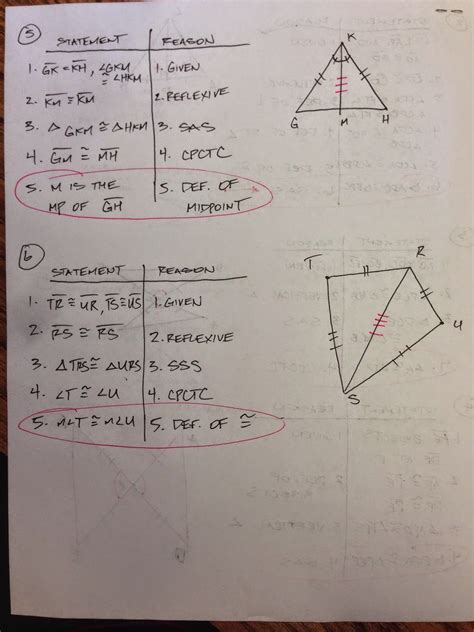 5
STATEMENT REASON
1. GK = KH, ∠GKM ≅ ∠HKM 1. GIVEN
2. KM ≅ KM 2. REFLEXIVE
3. △GKM ≅ △HKM 3. SAS
4. GM ≅ MH 4. CPCTC
5. M IS THE 5. DEF. OF
MP OF GH MIDPOINT
K
G M H
6
STATEMENT REASON
1. TR ≅ UR, TS ≅ US 1. GIVEN
2. RS ≅ RS 2. REFLEXIVE
3. △TRS ≅ △URS 3. SSS
4. ∠T ≅ ∠U 4. CPCTC
5. m∠T ≅ m∠U 5. DEF. OF ≅
T R
U
S